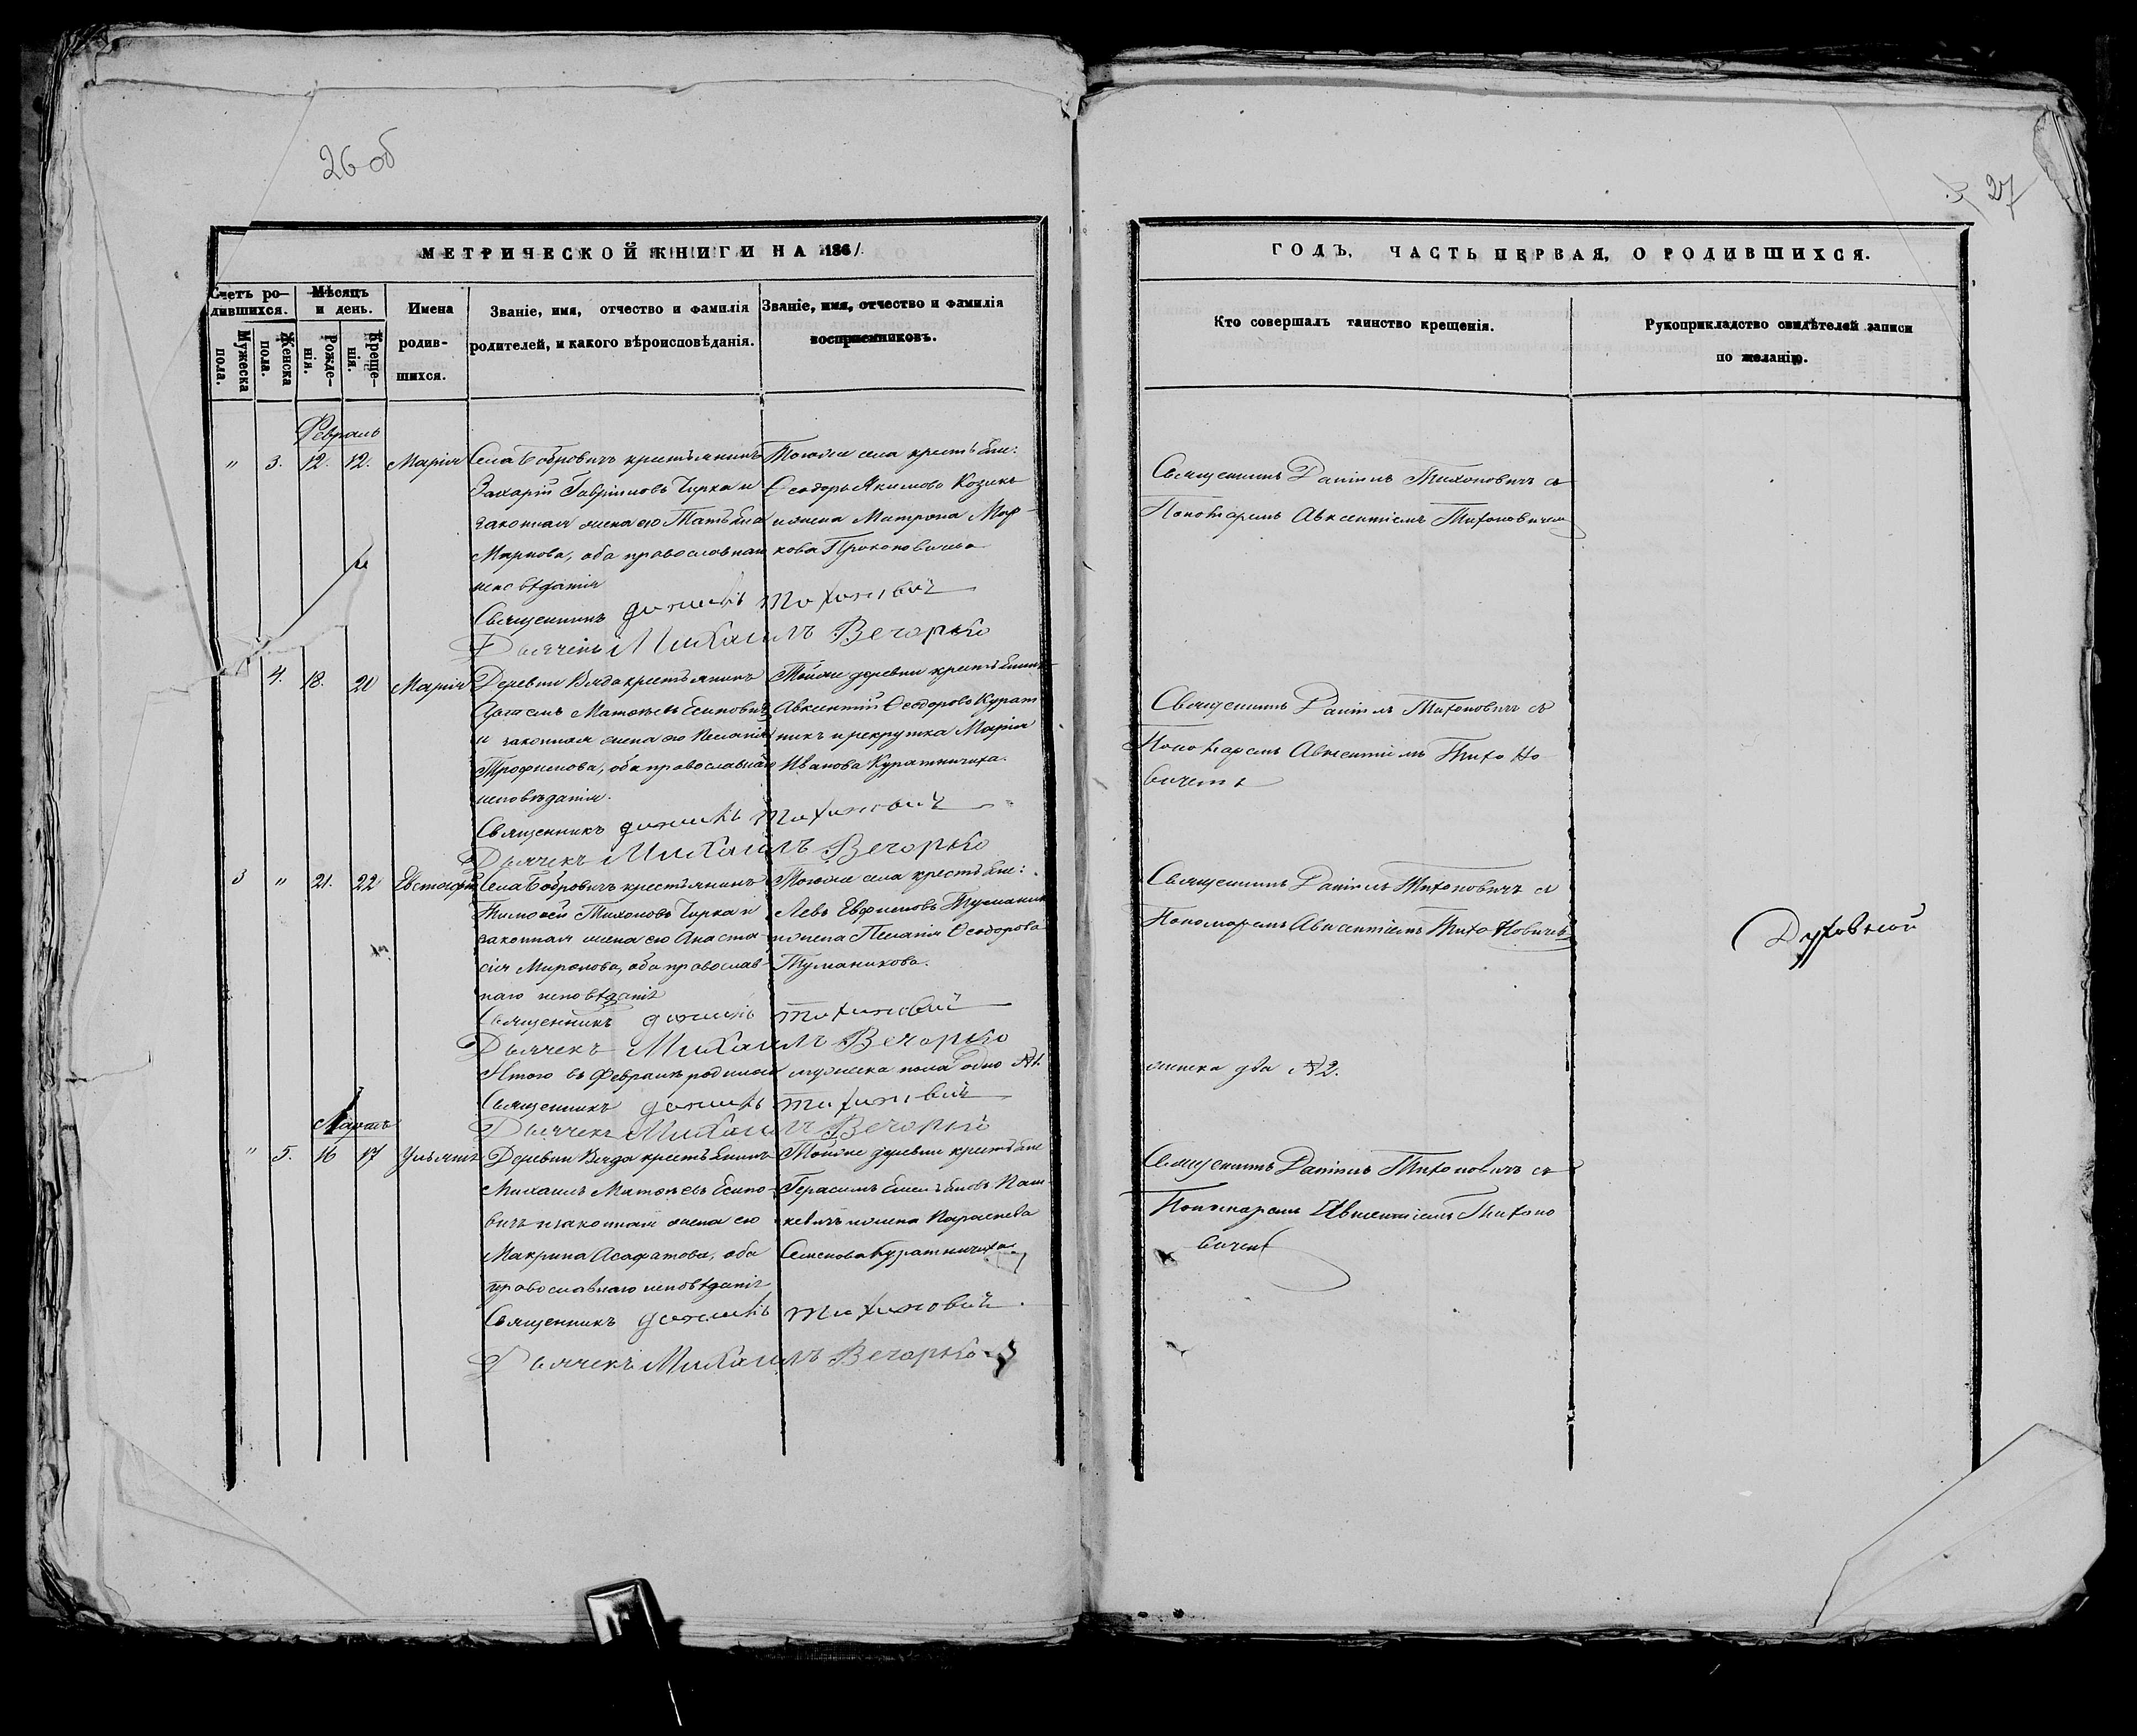 26 об
27
МЕТРИЧЕСКОЙ КНИГИ НА 1861
Счетъ ро-
дившихся.
Мѣсяцъ
и день.
Мужеска
пола.
Женска
пола.
Рожде-
нія.
Креще-
нія.
Имена
родив-
шихся.
Званіе, имя, отчество и фамилія
родителей, и какого вѣроисповѣданія.
Званіе, имя, отчество и фамилія
воспріемниковъ.
Февраль
" 3. 12. 12. Марія
Села Бобровичъ крестьянинъ
Захарій Гавріиловъ Чирка и
законная жена его Татьяна
Маркова, оба православнаго
исповѣданія
Тогоже села крестьяне:
Ѳеодоръ Якимовъ Козикъ
и жена Матрона Мар-
кова Прокоповичева
Священникъ Даніилъ Тихоновичъ
Дьячекъ Михаилъ Вечорко
4. 18. 20 Марія
Деревни Вяда крестьянинъ
Артемъ Матвѣевъ Есиповичъ
и законная жена его Пелагія
Трофимова, оба православнаго
исповѣданія.
Тойже деревни крестьянинъ
Авксентій Ѳеодоровъ Курат
никъ и рекрутка Марія
Иванова Куратничиха.
Священникъ Даніилъ Тихоновичъ
Дьячекъ Михаилъ Вечорко
3 " 21. 22 Евстафій
Села Бобровичъ крестьянинъ
Тимоѳей Тихоновъ Чирка и
законная жена его Анаста-
сія Миронова, оба православ-
наго исповѣданія
Тогоже села крестьяне:
Левъ Евфимовъ Туманик
и жена Пелагія Ѳеодорова
Туманикова.
Священникъ Даніилъ Тихоновичъ
Дьячекъ Михаилъ Вечорко
Итого въ Февралѣ родилось мужеска пола одно №1.
Священникъ Даніилъ Тихоновичъ
Дьячекъ Михаилъ Вечорко
Мартъ
" 5. 16 17 Ульяна
Деревни Вяда крестьянинъ
Михаилъ Матвѣевъ Есипо-
вичъ и законная жена его
Макрина Асафатова, оба
православнаго исповѣданія
Тойже деревни крестьяне
Герасимъ Емельяновъ Паш-
кевичъ и жена Параскева
Семенова Куратничиха
Священникъ Даніилъ Тихоновичъ
Дьячекъ Михаилъ Вечорко
ГОДЪ, ЧАСТЬ ПЕРВАЯ, О РОДИВШИХСЯ.
Кто совершалъ таинство крещенія.
Рукоприкладство свидѣтелей записи
по желанію.
Священникъ Даніилъ Тихоновичъ съ
Пономаремъ Авксентіемъ Тихоновичем
Священникъ Даніилъ Тихоновичъ съ
Пономаремъ Авксентіемъ Тихоно
вичемъ
Священникъ Даніилъ Тихоновичъ съ
Пономаремъ Авксентіемъ Тихоновичемъ
Духовной
женска два №2.
Священникъ Даніилъ Тихоновичъ съ
Пономаремъ Авксентіемъ Тихоно
вичем